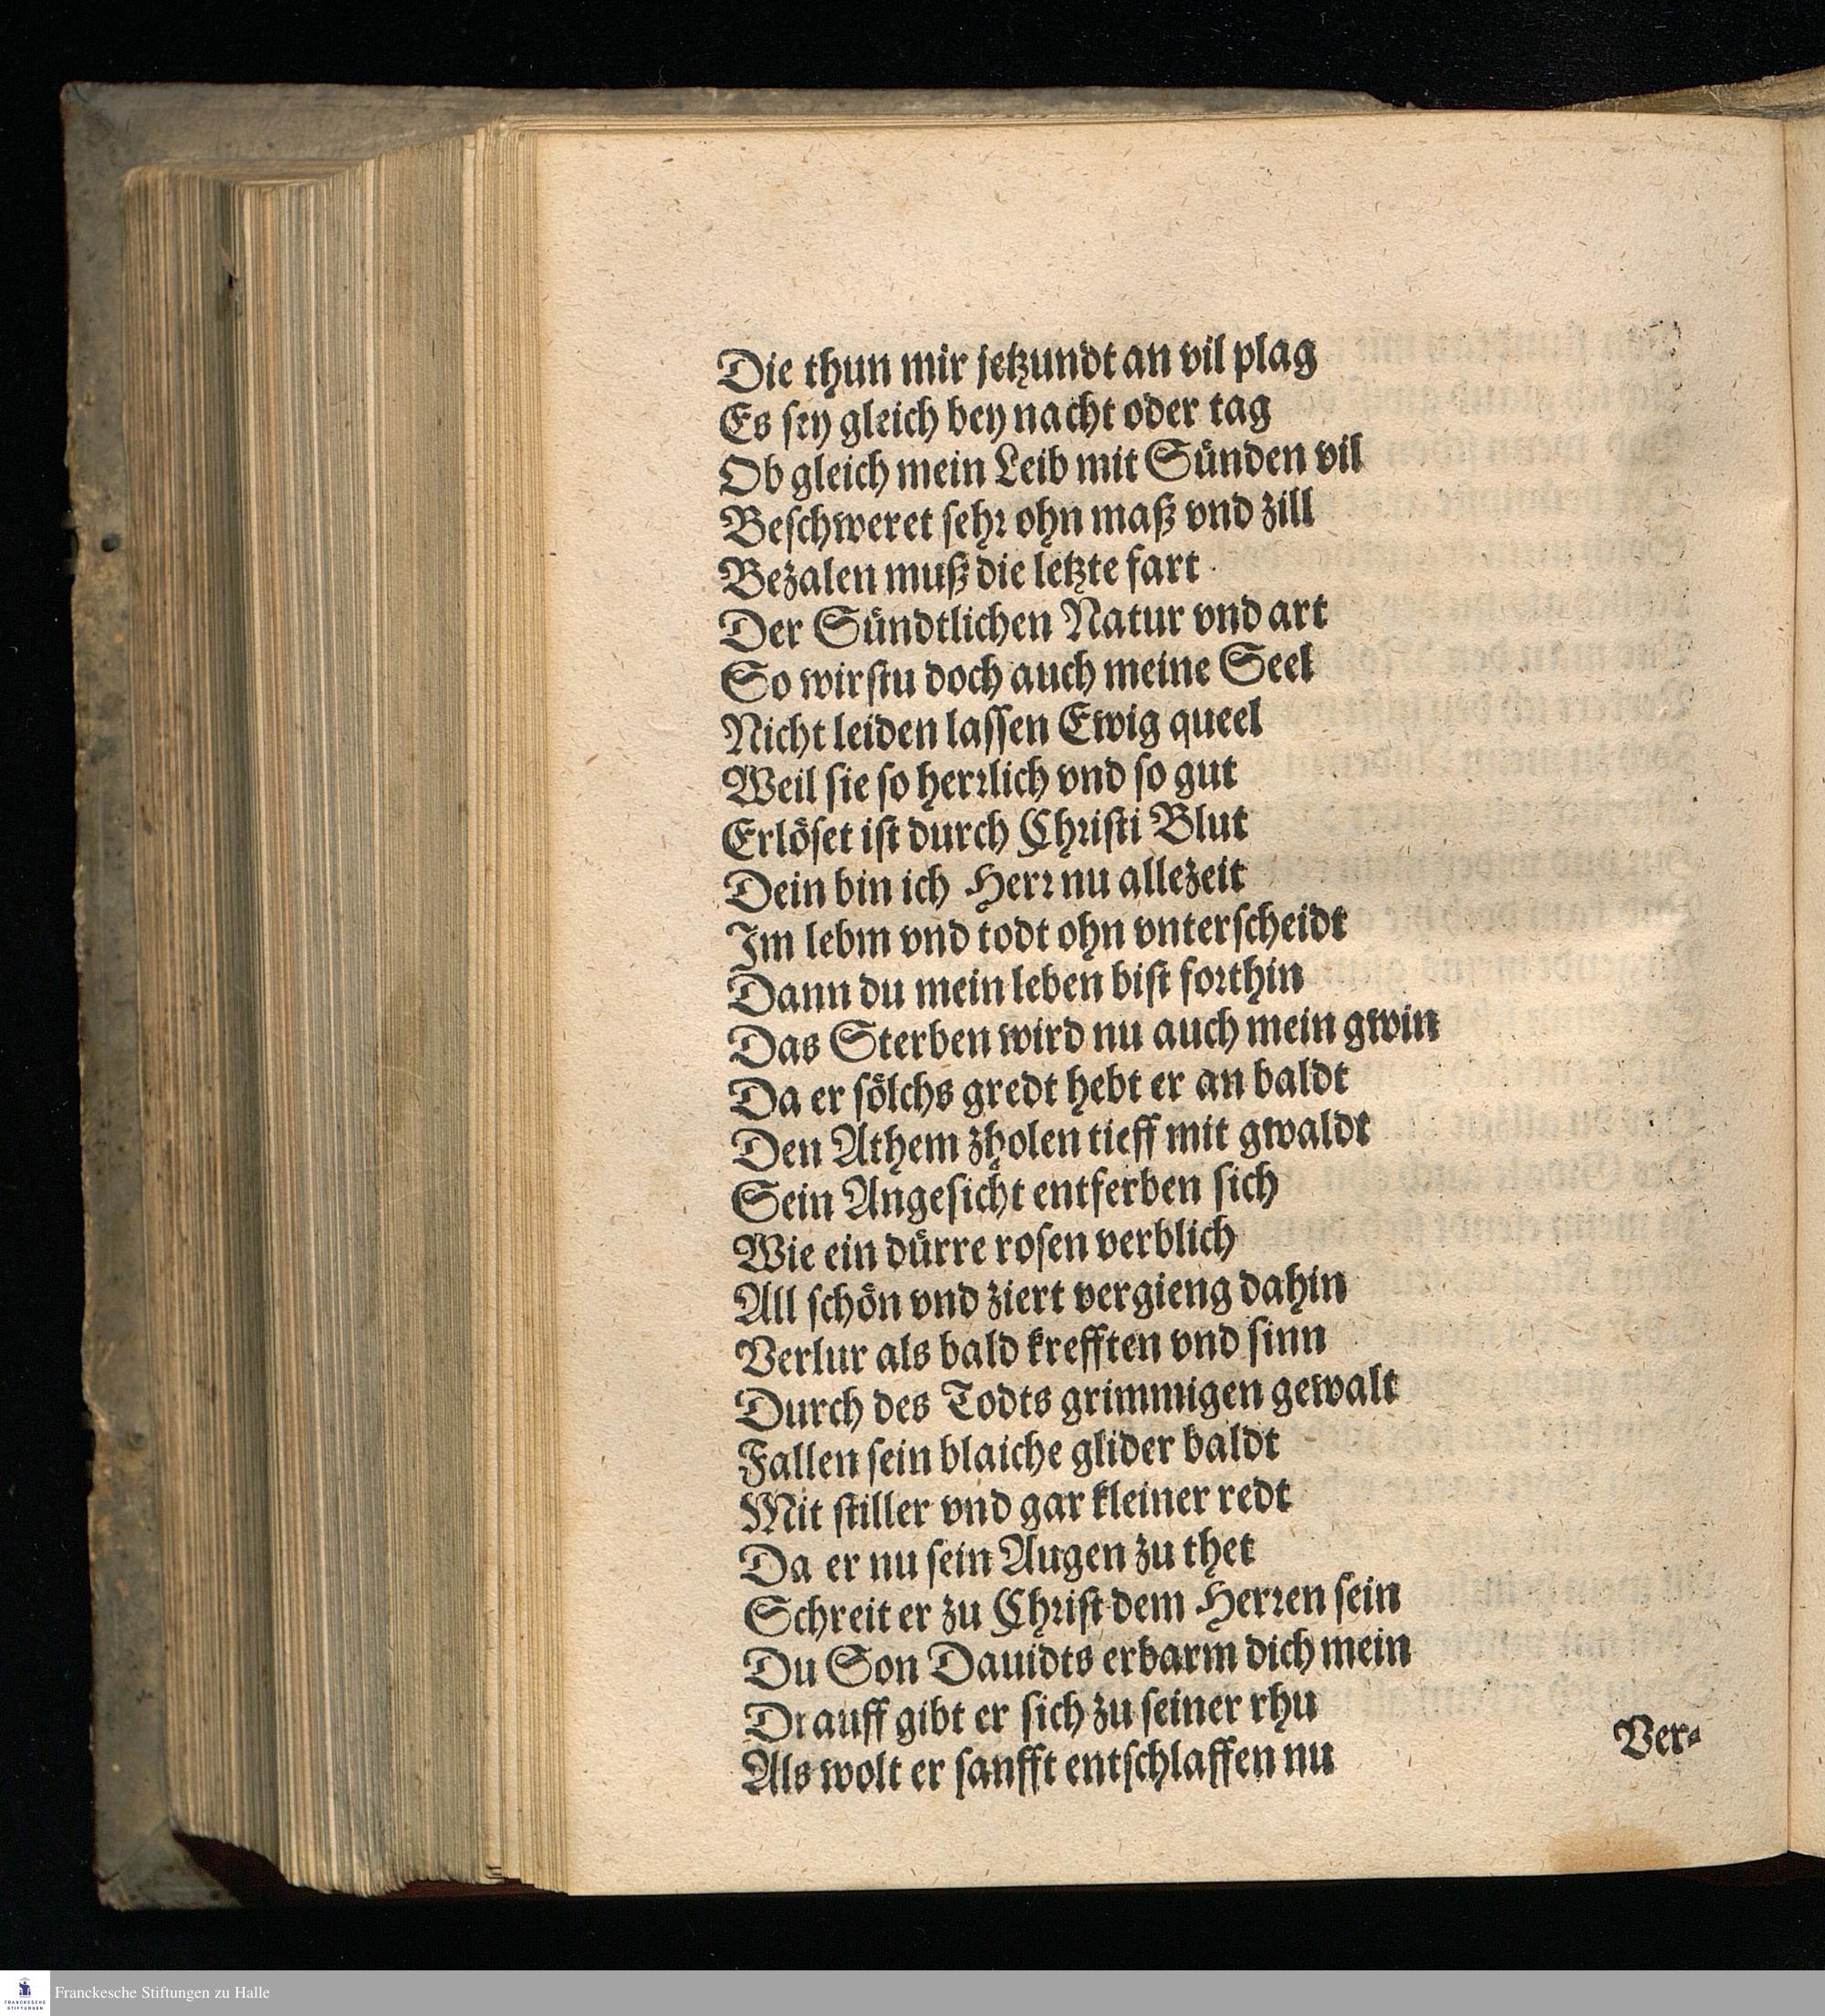 Die thun mir jetzundt an vil plag
Es sey gleich bey nacht oder tag
Ob gleich mein Leib mit Sünden vil
Beschweret sehr ohn maß vnd zill
Bezalen muß die letzte fart
Der Sündtlichen Natur vnd art
So wirstu doch auch meine Seel
Nicht leiden lassen Ewig queel
Weil sie so herrlich vnd so gut
Erlöset ist durch Christi Blut
Dein bin ich Herr nu allezeit
Im lebm vnd todt ohn vnterscheidt
Dann du mein leben bist forthin
Das Sterben wird nu auch mein gwin
Da er sölchs gredt hebt er an baldt
Den Athem zholen tieff mit gwaldt
Sein Angesicht entferben sich
Wie ein dürre rosen verblich
All schön vnd ziert vergieng dahin
Verlur als bald krefften vnd sinn
Durch des Todts grimmigen gewalt
Fallen sein blaiche glider baldt
Mit stiller vnd gar kleiner redt
Da er nu sein Augen zu thet
Schreit er zu Christ dem Herren sein
Du Son Dauidts erbarm dich mein
Drauff gibt er sich zu seiner rhu
Als wolt er sanfft entschlaffen nu
Ver-
FRANCKESCHE
STIFTUNGEN
Franckesche Stiftungen zu Halle